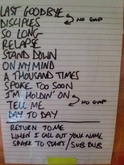 LAST GOODBYE
DISCIPLES
NO GAP
SO LONG
RELAPSE
STAND DOWN
ON MY MIND
A THOUSAND TIMES
SPOKE TOO SOON
I'M HOLDIN' ON
TELL ME
NO GAP
DAY TO DAY
RETURN TO ME
WHEN I CALL OUT YOUR NAME
SPACE TO START / SUB DUB